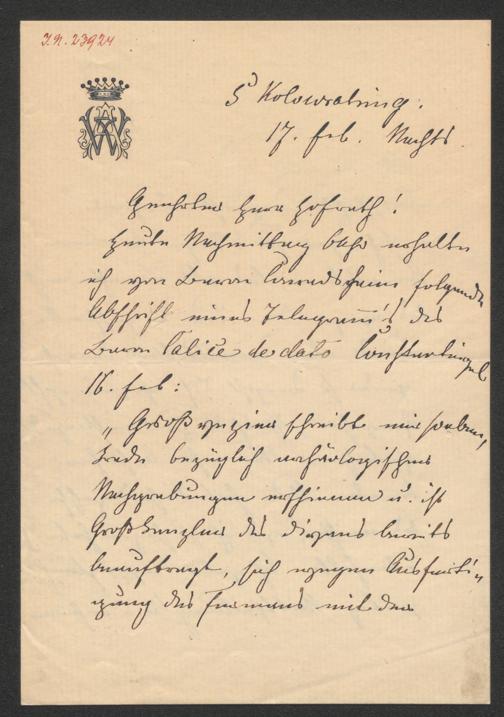 I.N. 23924
5 Kolowratring.
17. Feb. Nachts
Geehrter Herr Hofrath!
Heute Nachmittag 6 Uhr erhalte
ich von Baron folgende
Abschrift eines Telegramm's des
Baron Calice de dato Constantinopel
16. Feb:
„Großvezier schreibt mir soeben,
Irade bezüglich archäologischer
Nachgrabungen erschienen u. ist
Großkanzler des Divans bereits
beauftragt, sich wegen Ausferti-
gung des Fermans mit der